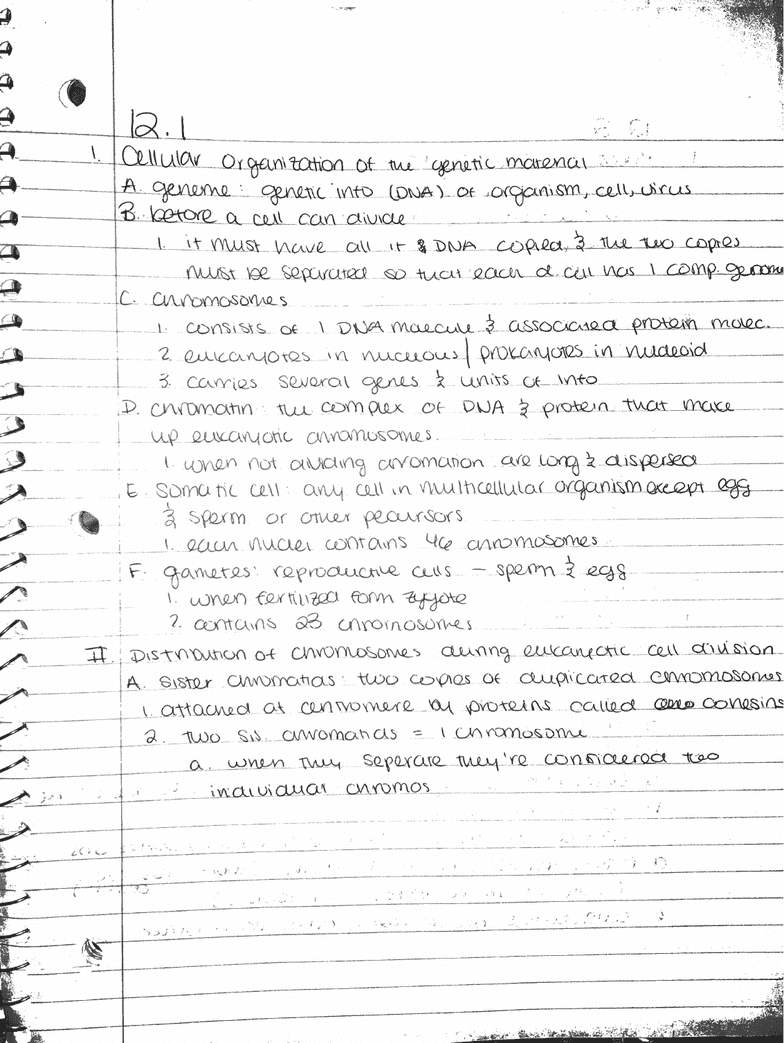 12.1
I. Cellular Organization of the genetic material
A. geneme: genetic info (DNA) of organism, cell, virus
B. before a cell can divide
1. it must have all it & DNA copied, & the two copies
must be separated so that each d. cell has 1 comp. genome
C. Chromosomes
1. consists of 1 DNA moecule & associated protein molec.
2. eukaryotes in nuceous | prokaryotes in nucleoid
3. carries several genes & units of info
D. chromatin: the complex of DNA & protein that make
up eukaryotic chromosomes.
1. when not dividing chromation are long & dispersed
E. Somatic cell: any cell in multicellular organism except egg
& sperm or other pecursors
1. each nuclei contains 46 chromosomes
F. gametes: reproductive cells – sperm & egg
1. when fertilized form zygote
2. contains 23 chromosomes
II. Distribution of chromosomes during eukaryotic cell division
A. Sister chromatids: two copies of duplicated chromosomes
1. attached at centromere by proteins called cohesins
2. two sis. chromatids = 1 chromosome
a. when they seperate they're considered two
individual chromos